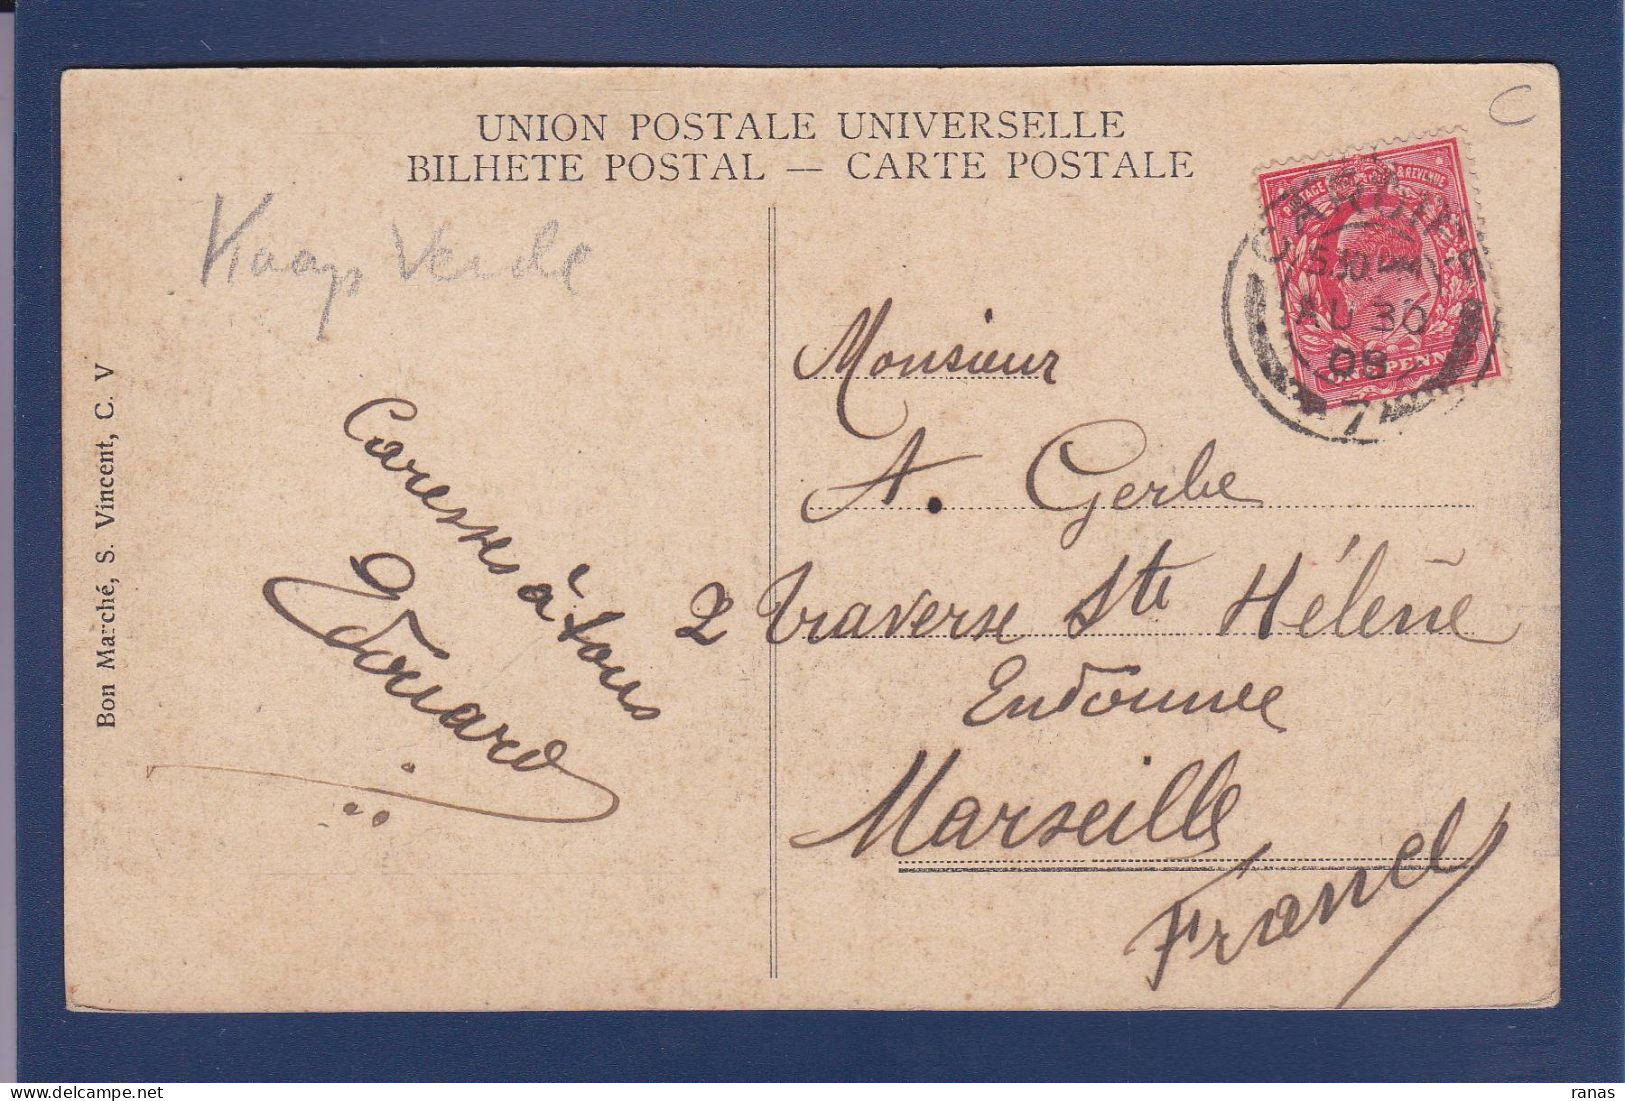 C
UNION POSTALE UNIVERSELLE
BILHETE POSTAL — CARTE POSTALE
Kaap Verde
Bon Marché, S. Vincent, C. V
Caresses à tous
Edouard
POSTAGE & REVENUE
ONE PENNY
CARDIFF
AU 30
08
7
Monsieur
A. Gerbe
2 traverse Ste Hélène
Endoumee
Marseille
France
ranas